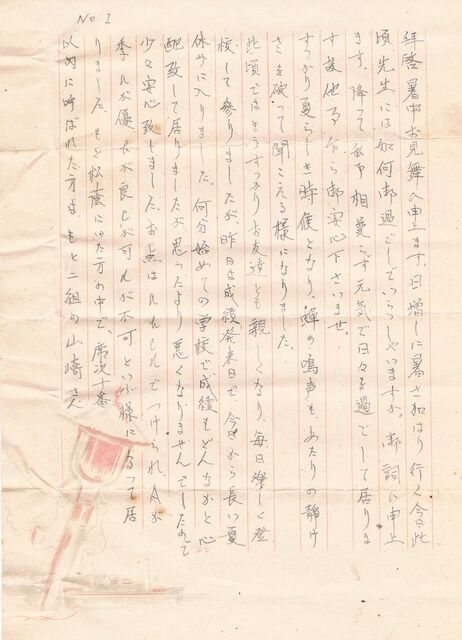 No 1
拝啓 暑中お見舞ひ申上ます。日増しに暑さ加はり行く今日此
頃先生には如何御過ごしでいらつしやいますか。御詞ひ申上
ます。降って私事相変らず元気で日々を過ごして居りま
す故他事乍ら御安心下さいませ。
すっかり夏らしき時候となり、蝉の鳴声もあたりの静け
さを破って聞こえる様になりました。
此頃ではもうすっかりお友達とも親しくなり、毎日楽しく登
校して参りましたが昨日は成績発表日で今日から長い夏
休みに入りました。何分始めての学校で成績もどんなかと心
配致して居りましたが、思ったより悪くなりませんでしたので
少々安心致しました。お点は
でつけられ、Aが
秀 Bが優 が良 Cが可 が不可といふ様になって居
りました。もと松蔭にゐた方の中で、席次十番
以内に呼ばれた方はもと二組の山崎さん